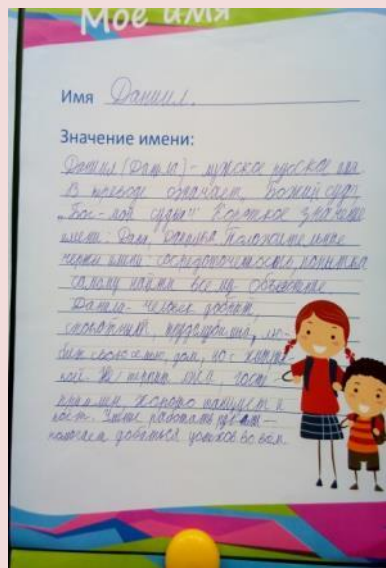 Моё имя
Имя Даниил.
Значение имени:
Даниил (Данила) - мужское русское имя
В переводе означает, "Божий суд",
"Бог - мой судья" Короткое значение
имени: Даня, Данилка. Положительные
черты имени: сосредоточенность, попытка
самому найти всему объяснение
Данила - человек добрый,
спокойный, трудолюбив, лю-
бит свою семью, дом, но с хитрин-
кой. Не терпит лжи, госте-
приимен, хорошо танцует и
поёт. Умение работать
помогает добиться успехов во всём